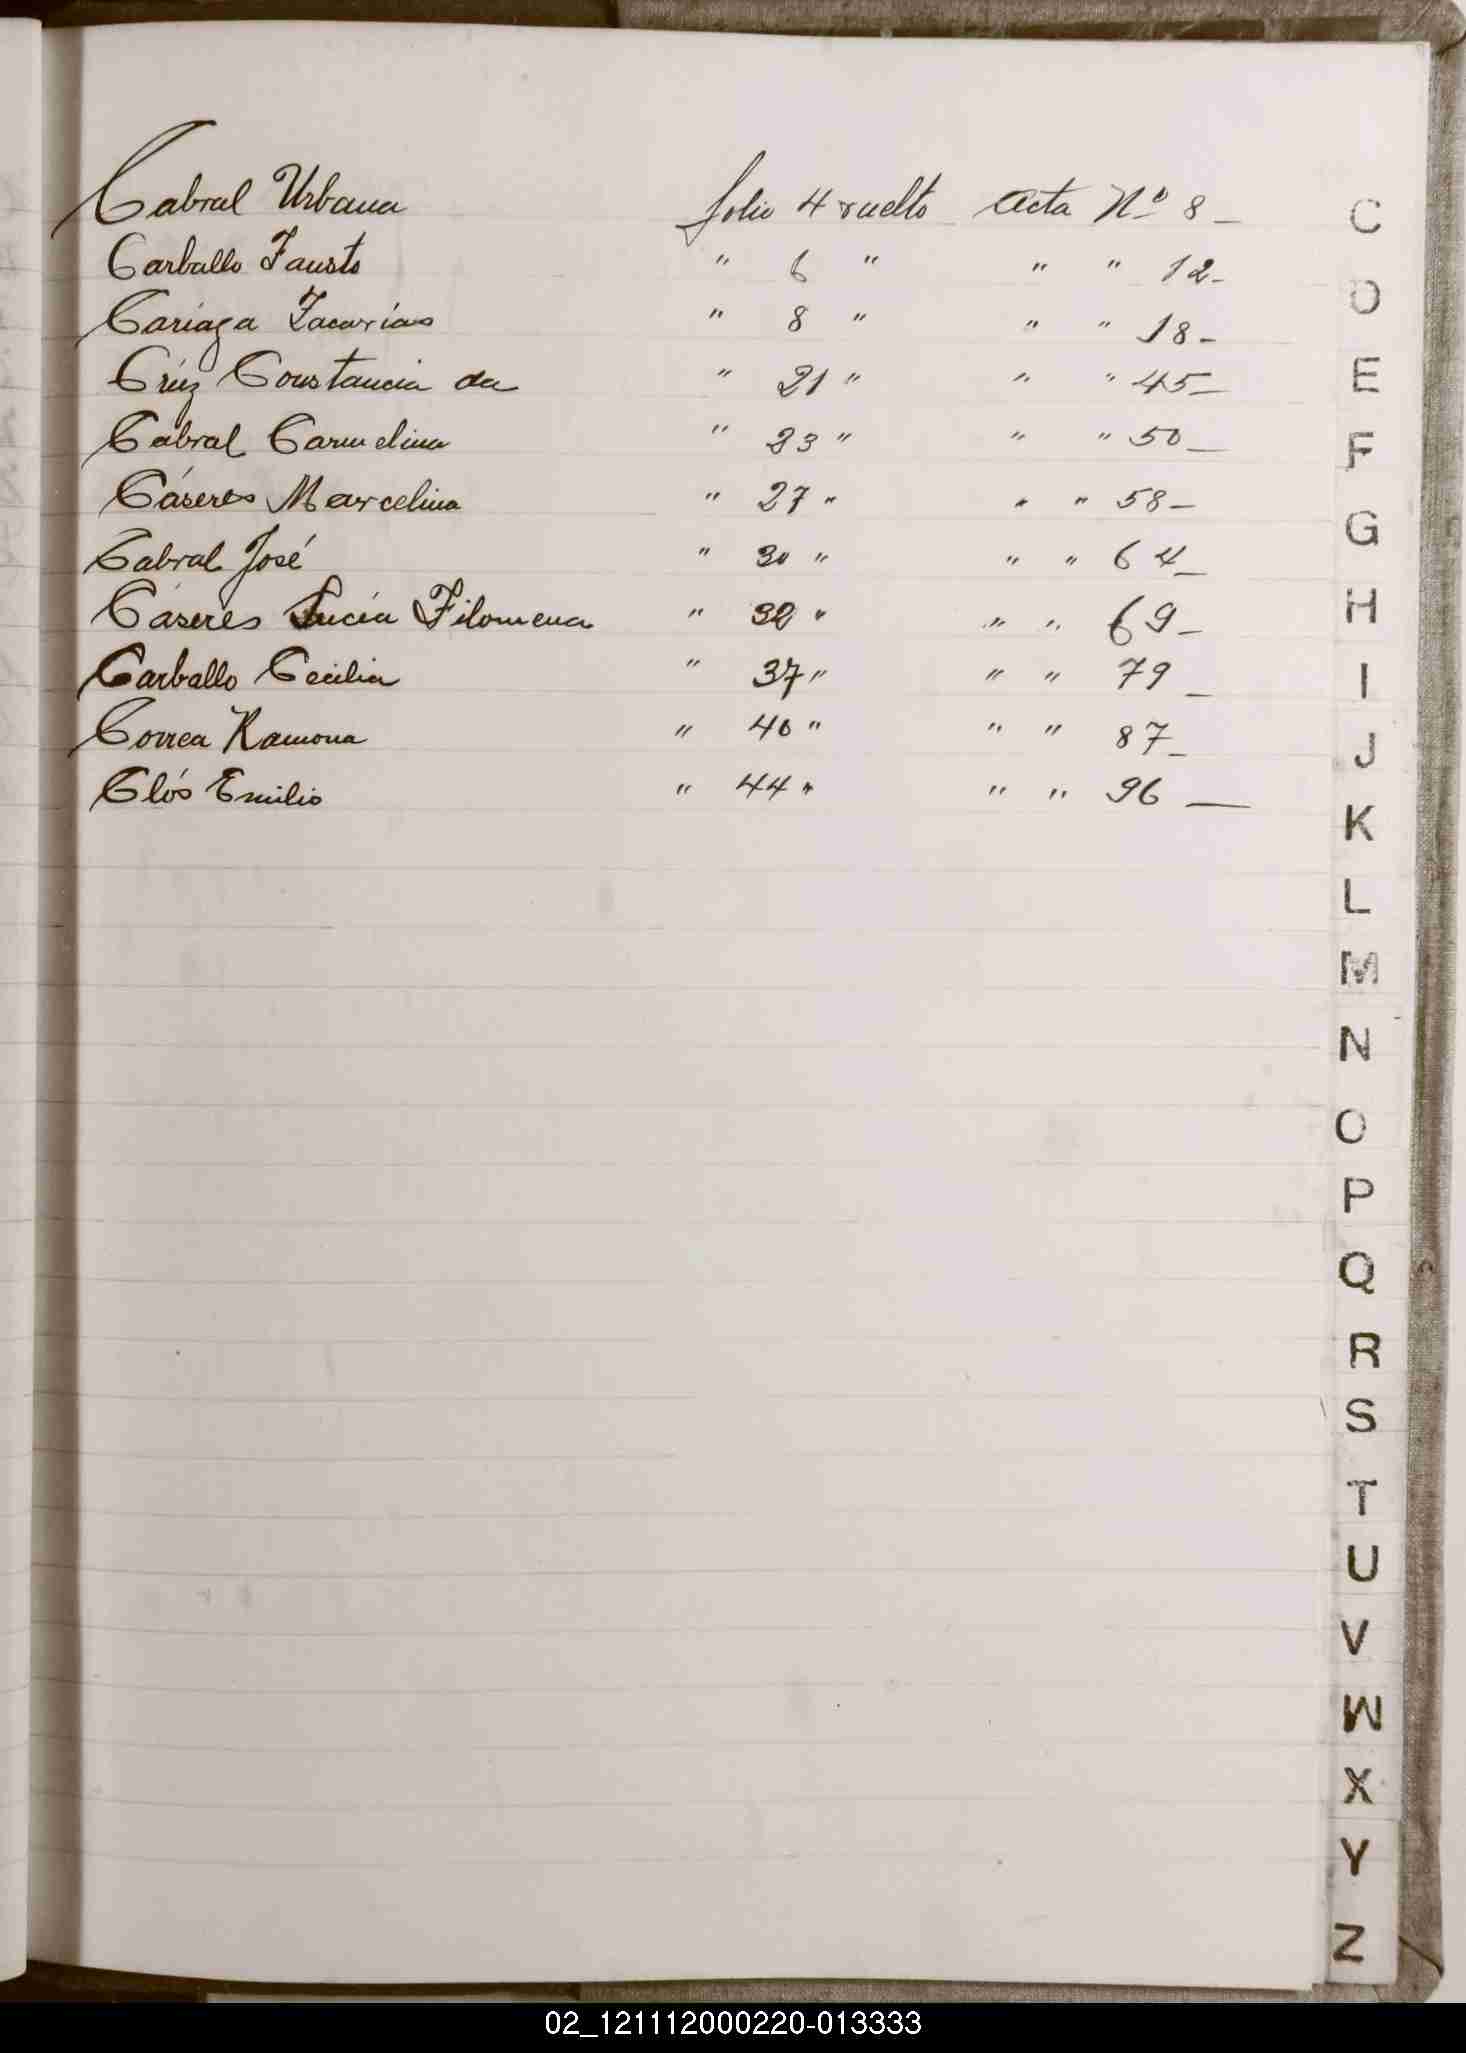 Cabral Urbana folio 4 vuelto Acta Nº 8 —
Carballo Fausto " 6 " " " 12 -
Cariaga Zacarías " 8 " " " 18 -
Crúz Constancia da " 21 " " " 45 —
Cabral Carmelina " 23 " " " 50 —
Cáseres Marcelina " 27 " " " 58 -
Cabral José " 30 " " " 64 —
Cáseres Lucía Filomena " 32 " " " 69 -
Carballo Cecilia " 37 " " " 79 —
Correa Ramona " 40 " " " 87 -
Clós Emilio " 44 " " " 96 —
C
D
E
F
G
H
I
J
K
L
M
N
O
P
Q
R
S
T
U
V
W
X
Y
Z
02_121112000220-013333